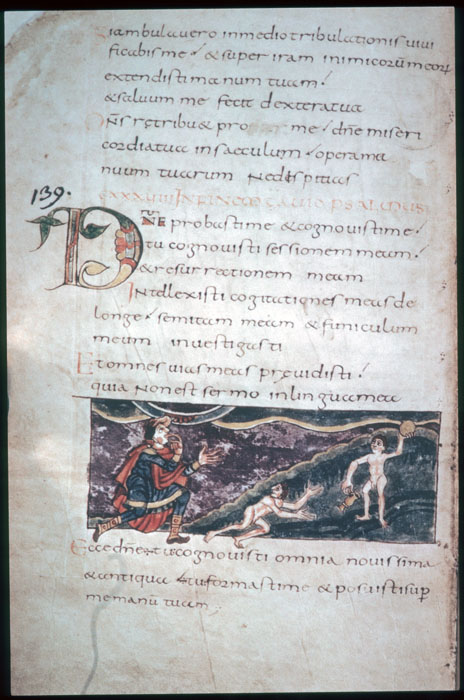 Siambulavero inmediotribulationis vivi
ficabis me / & super iram inimicorū meorū
extendisti manum tuam /
& saluum me fecit dextera tua
Dn̄s retribu& pro me / dn̄e miseri
cordia tua insaeculum / opera ma
nuum tuarum Nedispicias
139.
CXXXVIIII IN FINEM DAVID PSALMUS
Dn̄e probastime & cognovistime /
tu cognovisti sessionem meam /
& resurrectionem meam
Intellexisti cogitationes meas de
longe / semitam meam & funiculum
meum investigasti
Et omnes vias meas previdisti /
quia Non est sermo inlingua mea
Ecce dn̄e tu cognovisti omnia novissima
& antiqua tu formastime & posuisti sup
me manū tuam ;